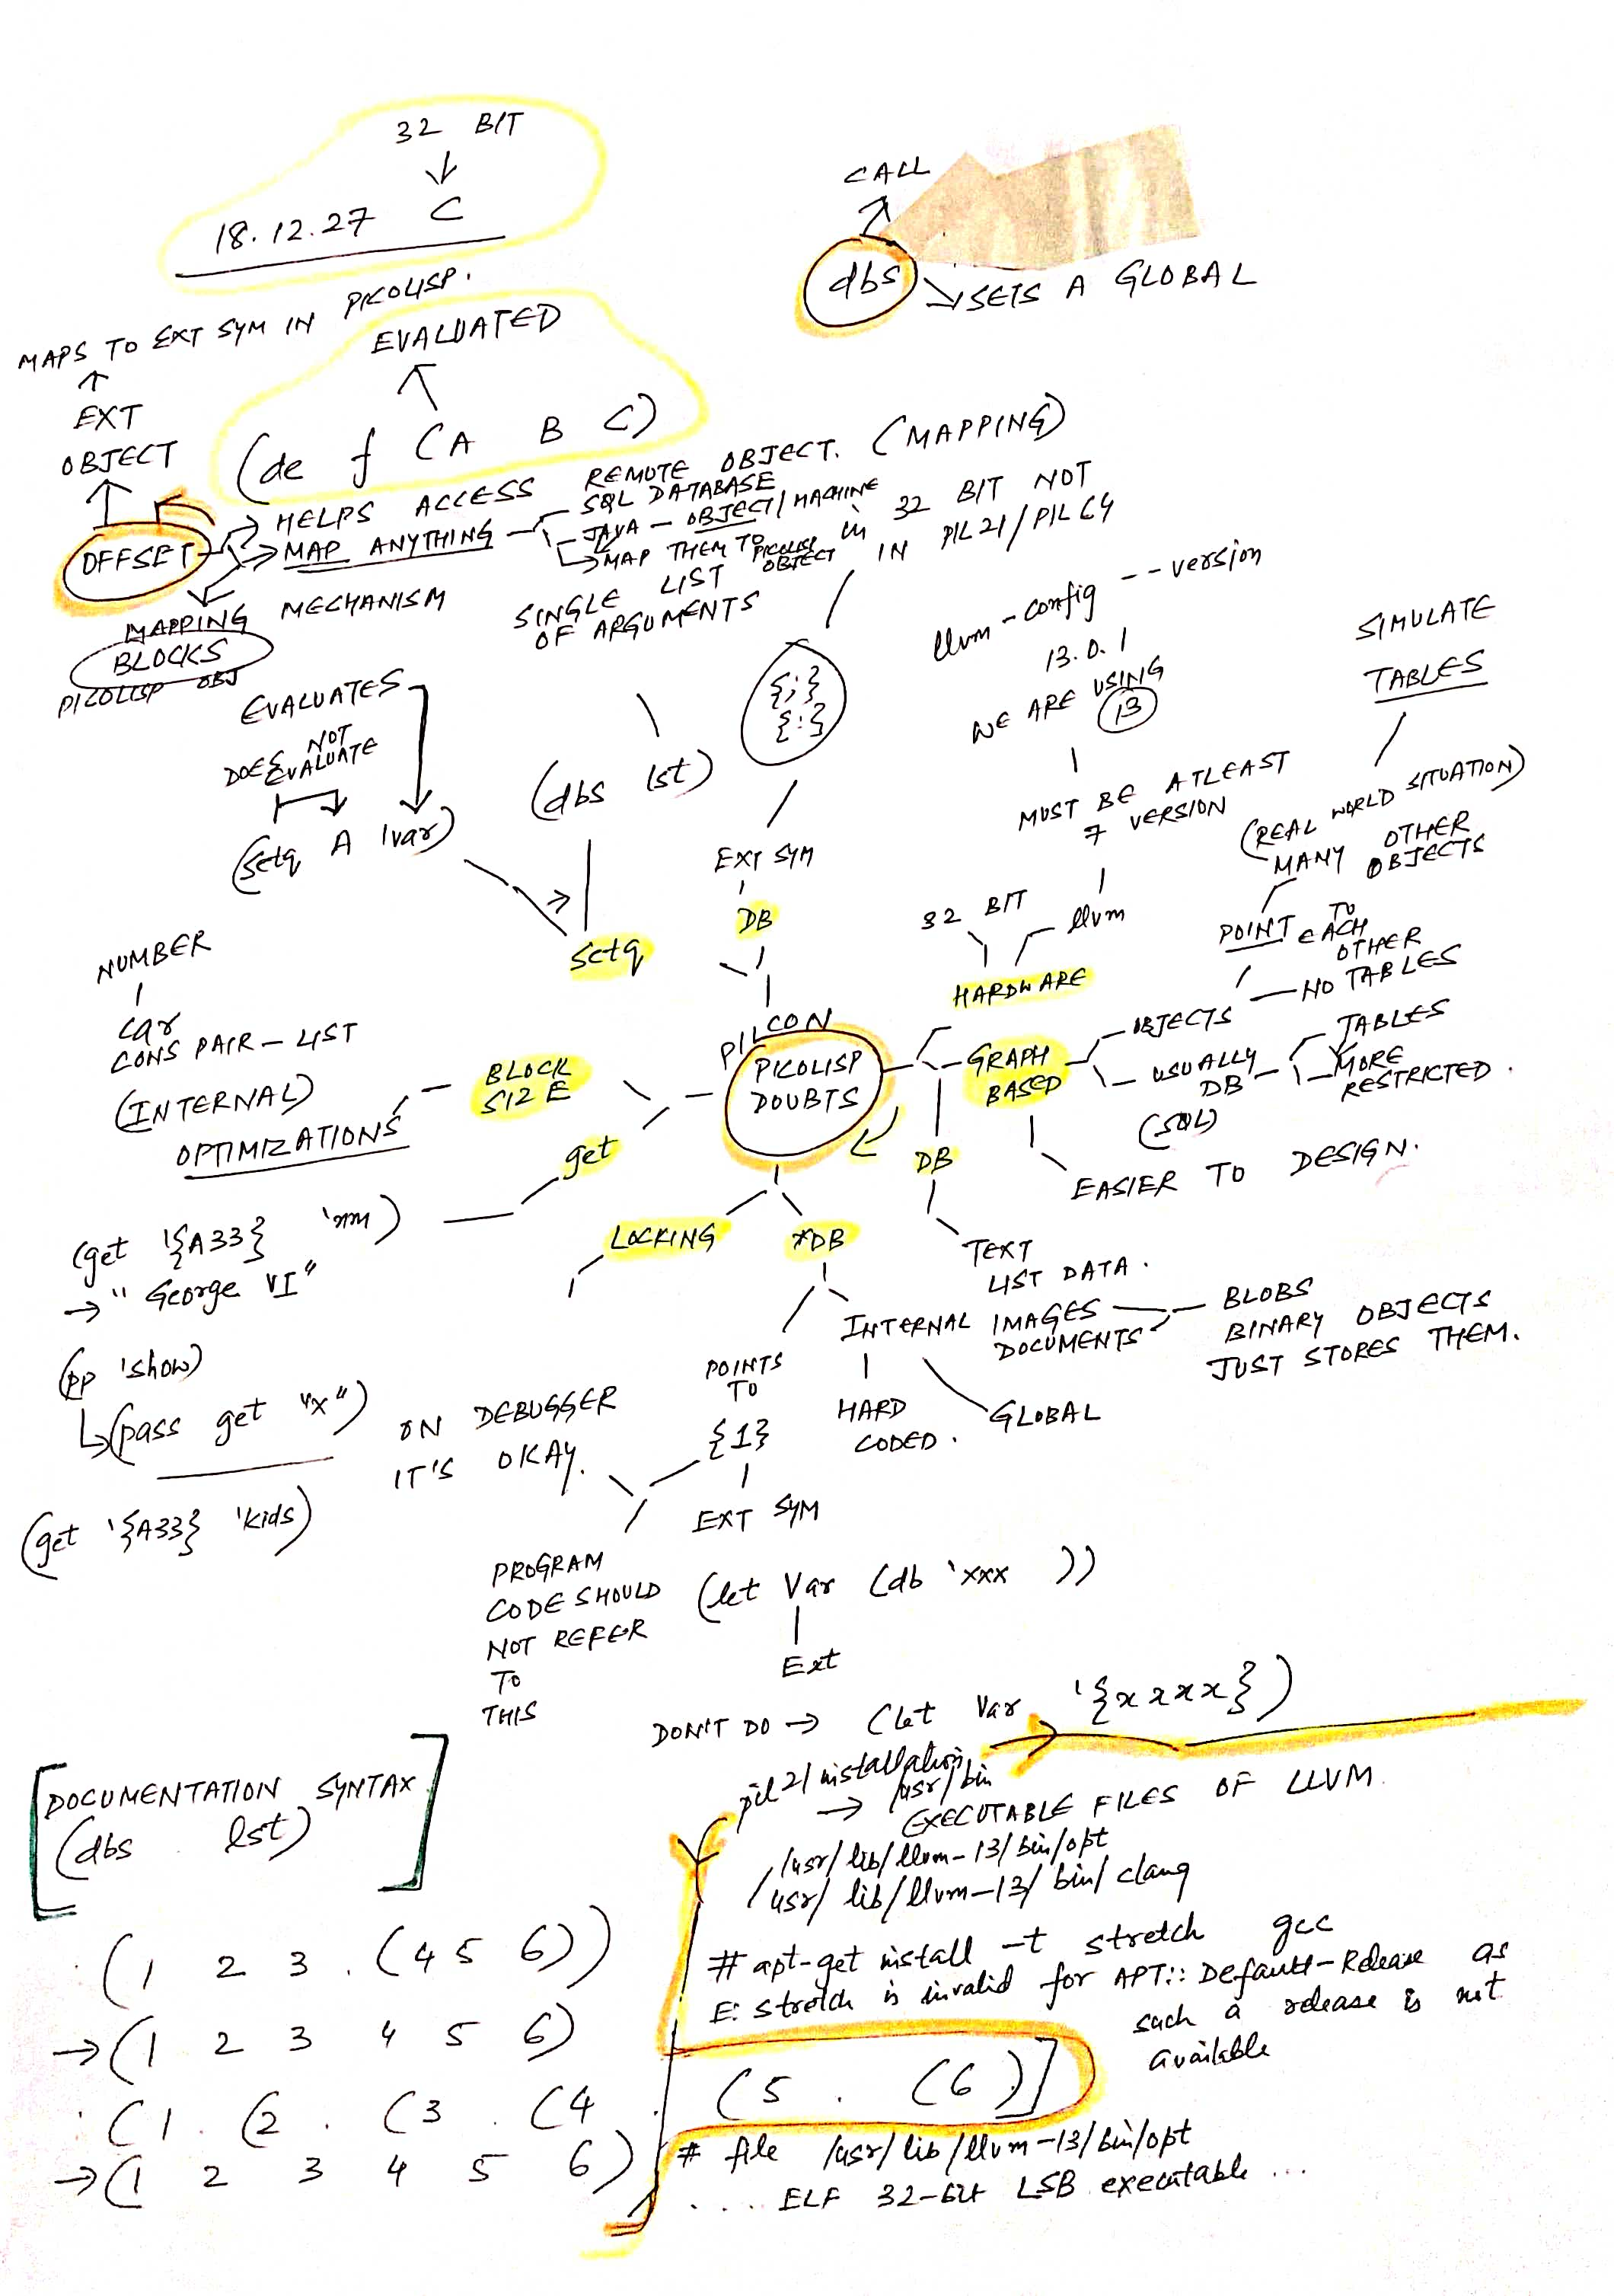 32 BIT
18.12.27 C
MAPS TO EXT SYM IN PICOLISP.
EXT
OBJECT
OFFSET
EVALUATED
(de f (A B C)
HELPS ACCESS REMOTE OBJECT. (MAPPING)
MAP ANYTHING
SQL DATABASE
JAVA – OBJECT/MACHINE
MAP THEM TO PICOLISP OBJECT
MAPPING MECHANISM
BLOCKS
PICOLISP OBJ
CALL
dbs
SETS A GLOBAL
in 32 BIT NOT
IN PIL21/PIL64
{;}
{:}
EXT SYM
DB
SINGLE LIST
OF ARGUMENTS
(dbs lst)
EVALUATES
DOES NOT
EVALUATE
(setq A 'var)
setq
llvm-config --version
13.0.1
WE ARE USING
13
MUST BE ATLEAST
7 VERSION
llvm
32 BIT
HARDWARE
SIMULATE
TABLES
(REAL WORLD SITUATION)
MANY OTHER
OBJECTS
POINT TO
EACH
OTHER
OBJECTS
NO TABLES
GRAPH
BASED
USUALLY
DB
(SQL)
TABLES
MORE
RESTRICTED.
EASIER TO DESIGN.
PILCON
PICOLISP
DOUBTS
NUMBER
car
CONS PAIR – LIST
(INTERNAL)
OPTIMIZATIONS
BLOCK
SIZE
get
(get '{A33} 'nm)
→ "George VI"
(pp 'show)
(pass get "x")
(get '{A33} 'kids)
LOCKING
*DB
DB
TEXT
LIST DATA.
INTERNAL
IMAGES
DOCUMENTS
BLOBS
BINARY OBJECTS
JUST STORES THEM.
HARD
CODED.
GLOBAL
POINTS
TO
{1}
EXT SYM
ON DEBUGGER
IT'S OKAY.
PROGRAM
CODE SHOULD
NOT REFER
TO
THIS
(let Var (db 'xxx ))
Ext
DON'T DO → (let Var '{xxxx})
pil21 installation
→ /usr/bin
EXECUTABLE FILES OF LLVM.
/usr/lib/llvm-13/bin/opt
/usr/lib/llvm-13/bin/clang
# apt-get install -t stretch gcc
E: stretch is invalid for APT::Default-Release as
such a release is not
available
DOCUMENTATION SYNTAX
(dbs . lst)
: (1 2 3 . (4 5 6))
→ (1 2 3 4 5 6)
: (1 . (2 . (3 . (4 . (5 . (6)]
→ (1 2 3 4 5 6)
# file /usr/lib/llvm-13/bin/opt
.... ELF 32-bit LSB executable ...